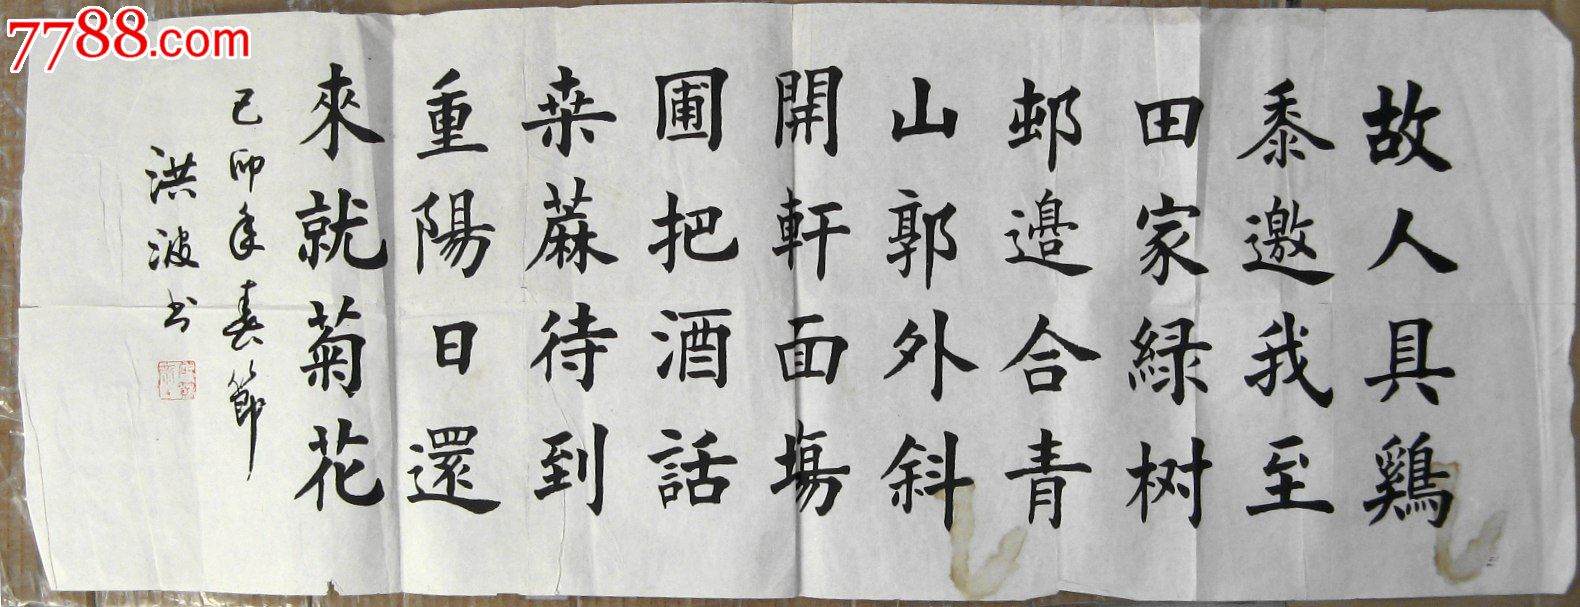 7788.com
故人具鷄
黍邀我至
田家緑树
邨邉合青
山郭外斜
開軒面場
圃把酒話
桒蔴待到
重陽日還
來就菊花
己卯年春節
洪波书